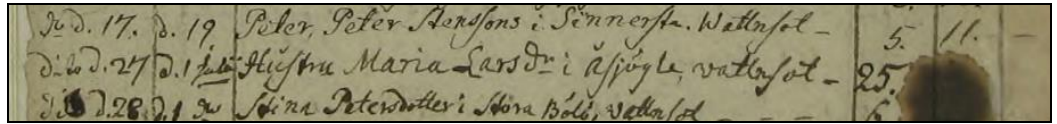 d. 17. d. 19 Peter, Peter Stenssons i Sinnersta. Wattnsot – 5. 11. –
dito d. 27 d. 1 Juli Hustru Maria Larsdr i Åsjögle, wattnsot – 25.
d. 28 d. 1 Stina Petersdotter i Stora Bölö, wattnsot – – 6.